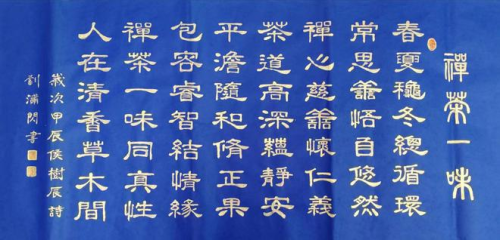 禪茶一味
春夏穐冬總循環
常思譱悟自悠然
禪心慈譱懷仁義
茶道高深蘊靜安
平澹隨和脩正果
包容睿智結情緣
禪茶一味同真性
人在清香草木間
歲次甲辰侯樹辰詩
劉浦書